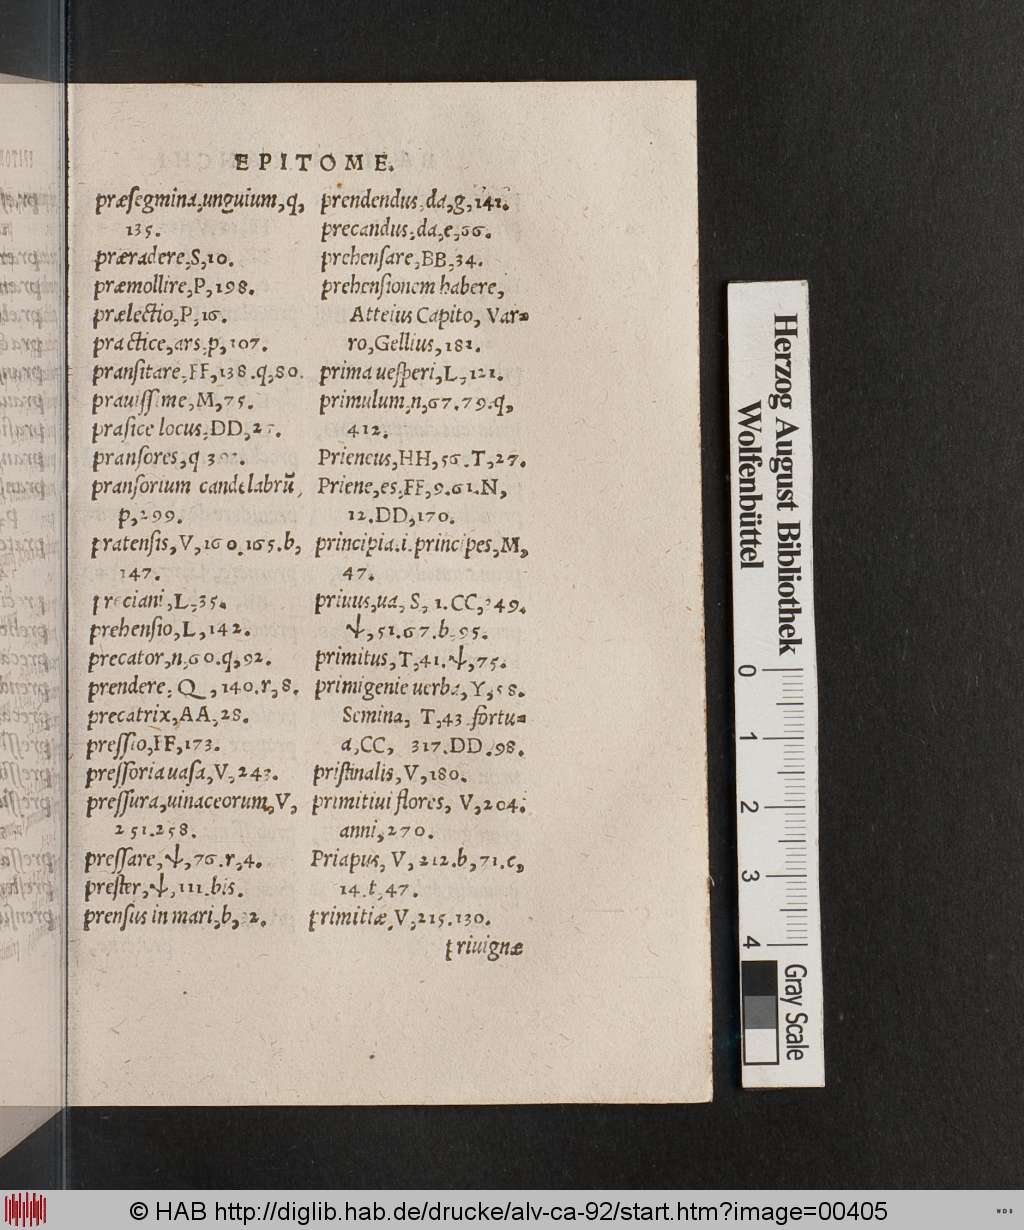 EPITOME.
præsegmina,unguium,q,
135.
præradere,S,10.
præmollire,P,198.
prælectio,P,16.
practice,ars,p,107.
pransitare,FF,138.q,80.
prauissime,M,75.
prasice locus,DD,
pransores,q
pransorium candelabrū,
p,299.
pratensis,V,160.165.b,
147.
preciani,L,35.
prehensio,L,142.
precator,n,60.q,92.
prendere,Q,140.r,8.
precatrix,AA,28.
pressio,FF,173.
pressoria uasa,V,243.
pressura,uinaceorum,V,
251.258.
pressare,ψ,76.r,4.
prester,ψ,111.bis.
prensus in mari,b,32.
prendendus,da,g,141.
precandus,da,e,66.
prehensare,BB,34.
prehensionem habere,
Atteius Capito, Var-
ro,Gellius,181.
prima uesperi,L,121.
primulum,n,67.79.q,
412.
Prieneus,HH,56.T,27.
Priene,es,FF,9.61.N,
12.DD,170.
principia.i.principes,M,
47.
priuus,ua, S, 1.CC,249.
ψ,51.67.b,95.
primitus,T,41.ψ,75.
primigenie uerba,Y,58.
Semina, T,43 fortu-
a,CC, 317.DD.98.
pristinalis,V,180.
primitiui flores, V,204.
anni,270.
Priapus, V, 212.b,71.c,
14.t,47.
primitiæ,V,215.130.
priuignæ
Herzog August Bibliothek
Wolfenbüttel
0 1 2 3 4
Gray Scale
© HAB http://diglib.hab.de/drucke/alv-ca-92/start.htm?image=00405